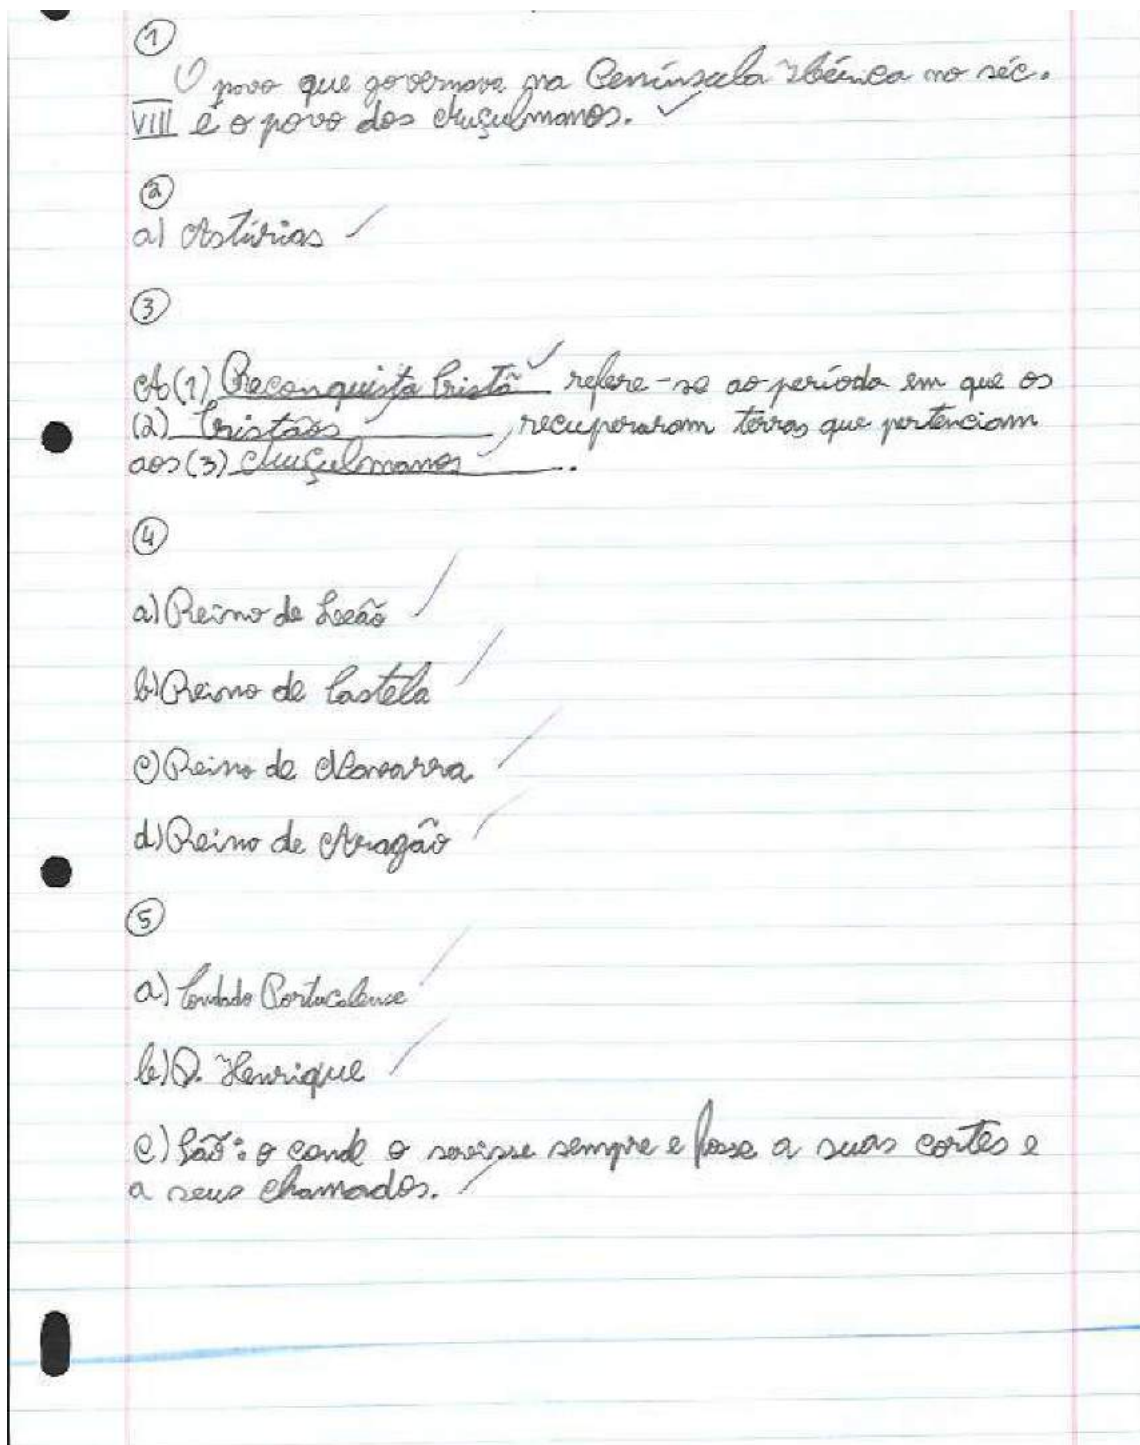 ①
O povo que governava na Península Ibérica no séc.
VIII é o povo dos Muçulmanos.
②
a) Astúrias
③
A (1) Reconquista Cristã refere-se ao período em que os
(2) Cristãos, recuperaram terras que pertenciam
aos (3) Muçulmanos.
④
a) Reino de Leão
b) Reino de Castela
c) Reino de Navarra
d) Reino de Aragão
⑤
a) Condado Portucalense
b) D. Henrique
c) São: o conde o servisse sempre e fosse a suas cortes e
a seus chamados.